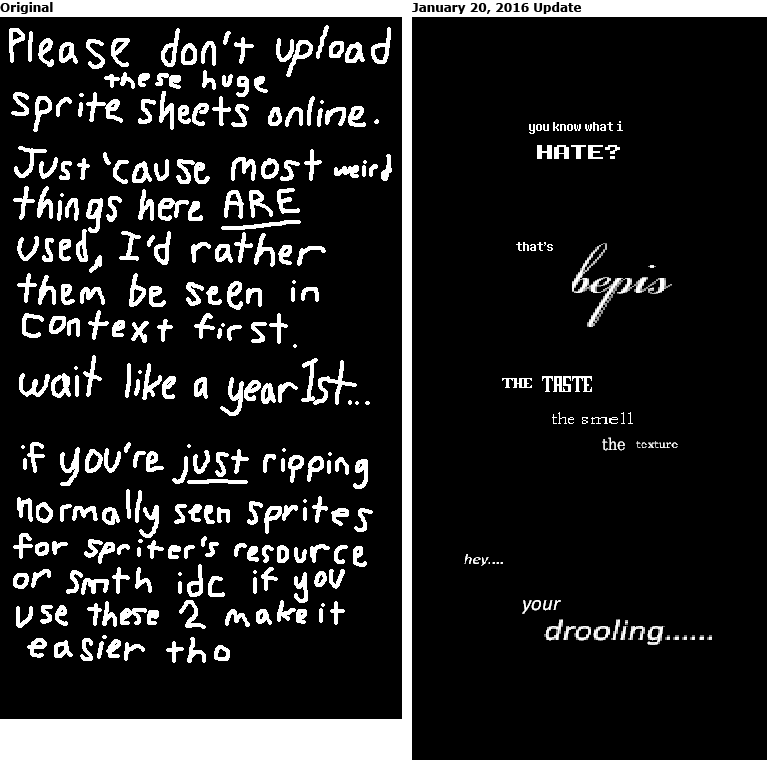 Original
Please don't upload
these huge
sprite sheets online.
Just 'cause most weird
things here ARE
used, I'd rather
them be seen in
context first.
wait like a year 1st...
if you're just ripping
normally seen sprites
for spriter's resource
or smth idc if you
use these 2 make it
easier tho
January 20, 2016 Update
you know what i
HATE?
that's
bepis
THE TASTE
the smell
the texture
hey....
your
drooling......